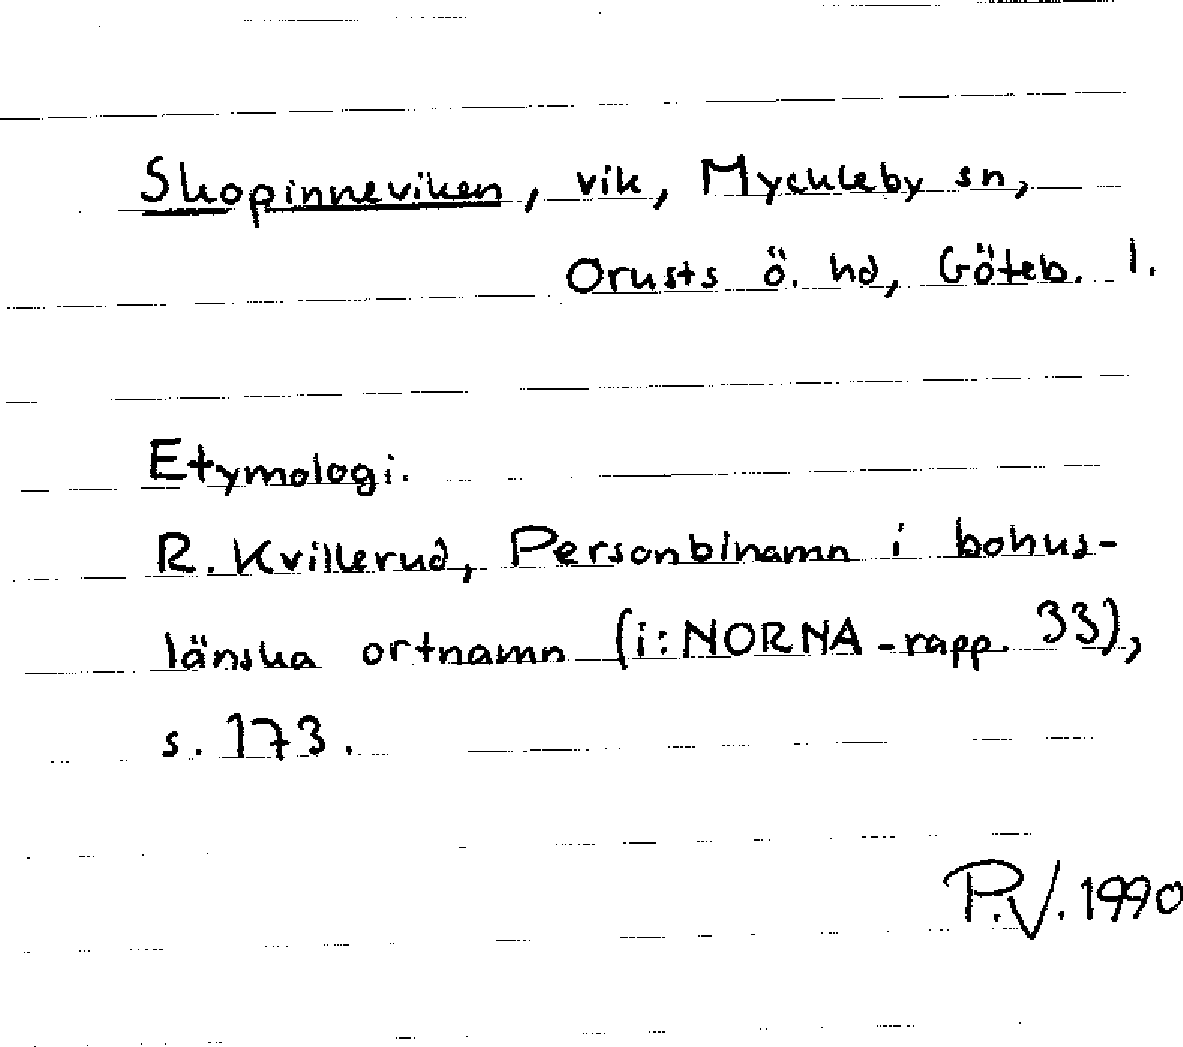 Skopinneviken, vik, Myckleby sn,
Orusts ö. hd, Göteb. l.
Etymologi.
R. Kvillerud, Personbinamn i bohus-
länska ortnamn (i: NORNA-rapp. 33),
s. 173.
P.V. 1990